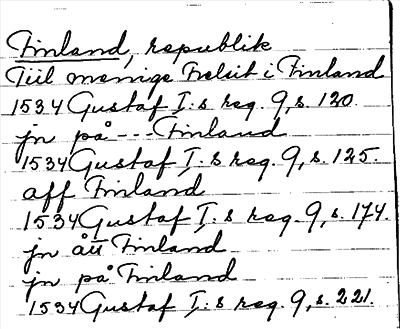 Finland, republik
Till menige Frelsit i Finland
1534 Gustaf I:s reg. 9, s. 120.
jn på --- Finland
1534 Gustaf I:s reg. 9, s. 125.
aff Finland
1534 Gustaf I:s reg. 9, s. 174.
jn ått Finland
jn på Finland
1534 Gustaf I:s reg. 9, s. 221.